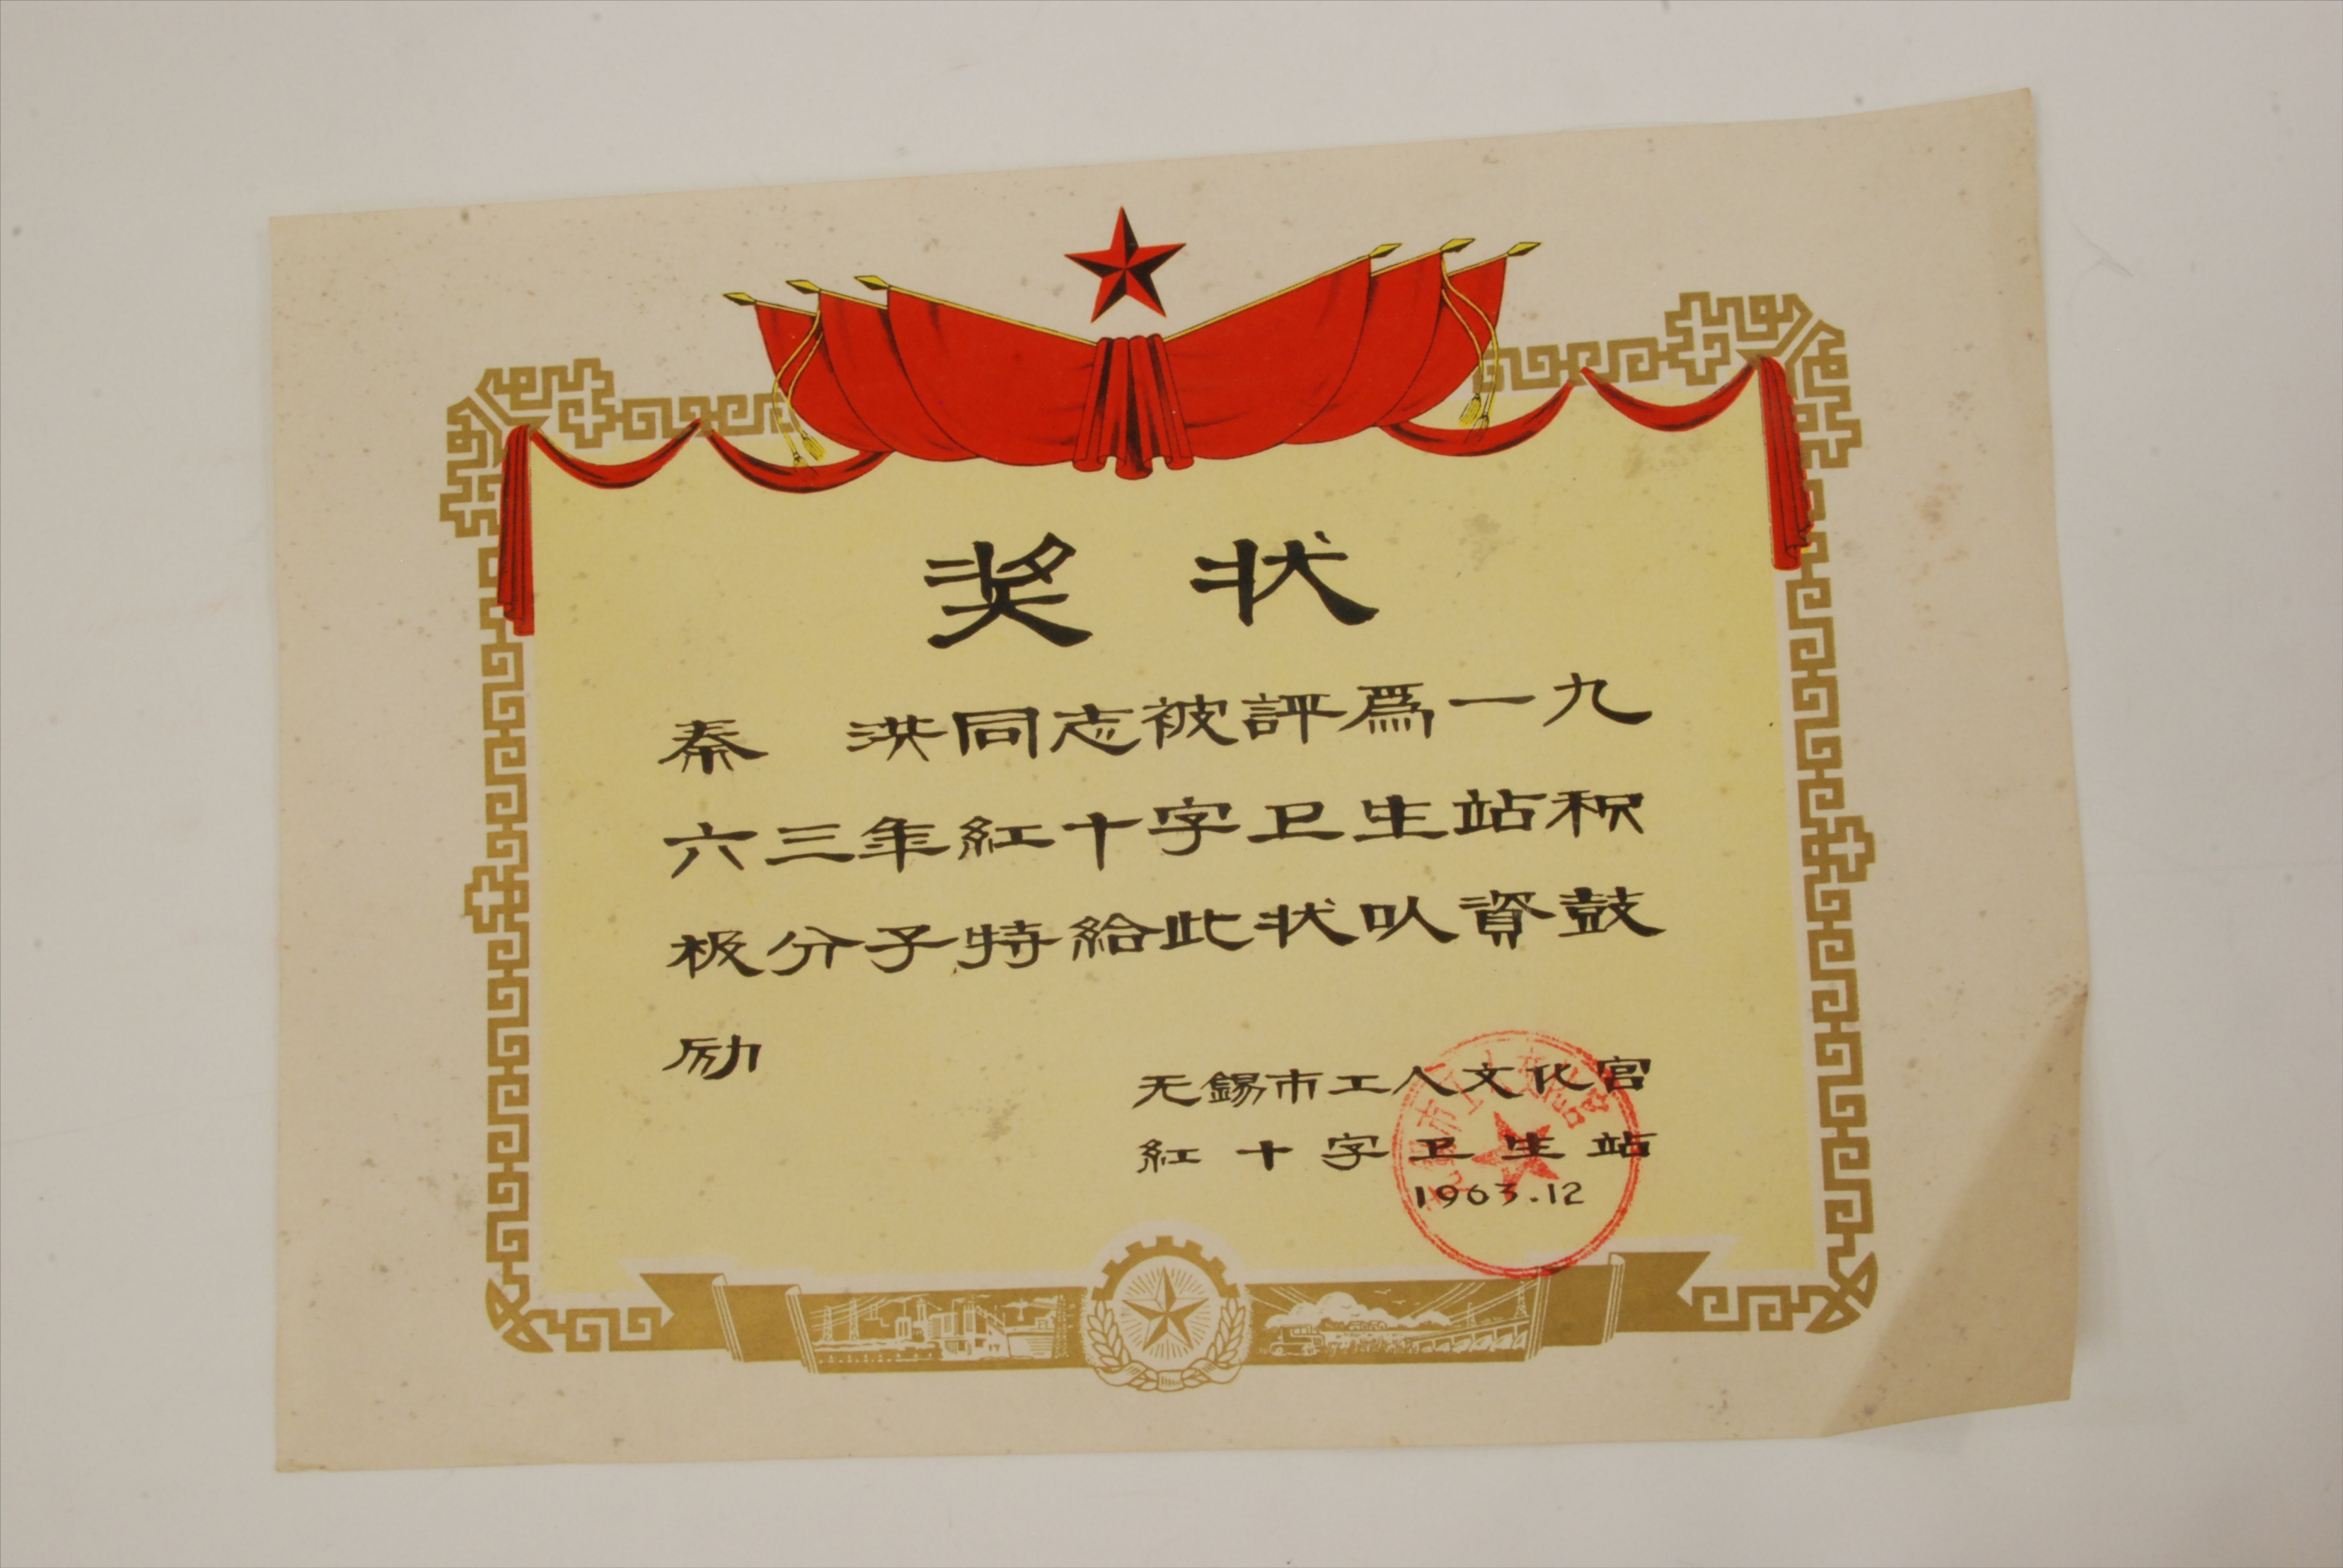 奖状
秦 洪同志被評爲一九
六三年紅十字卫生站积
极分子特給此状以資鼓
励
无錫市工人文化宫
紅十字卫生站
1963.12